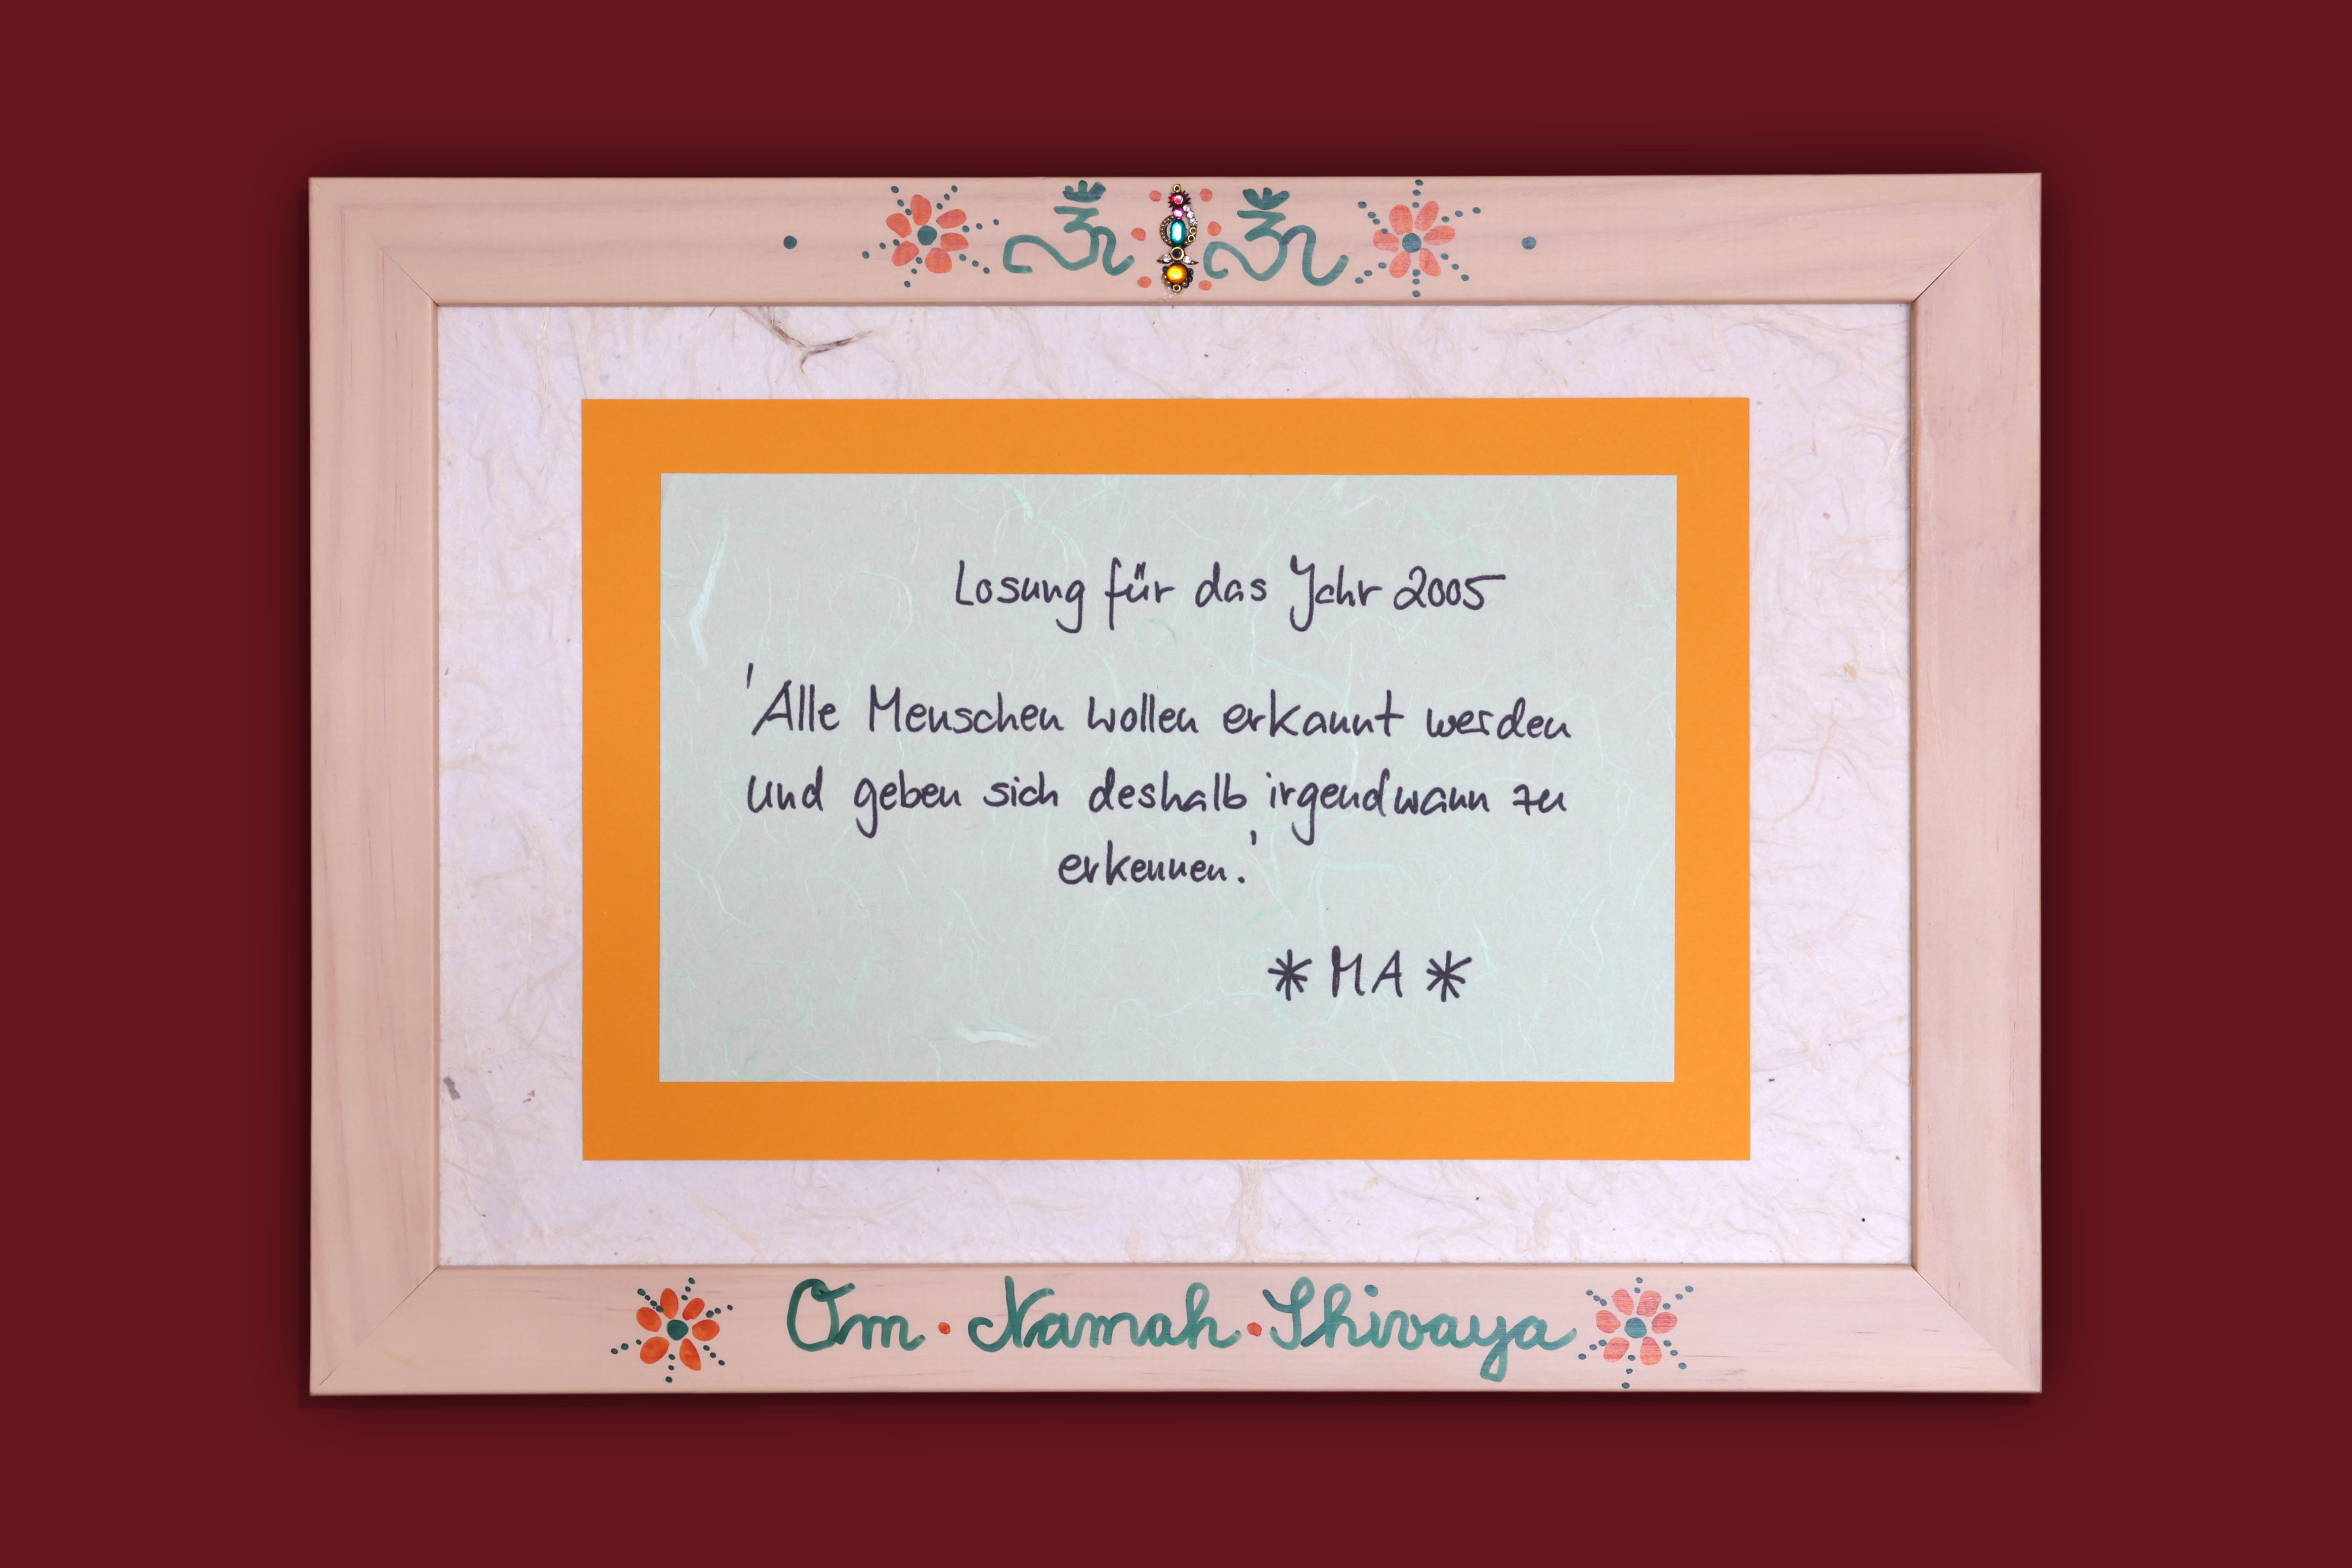 ॐ ॐ
Losung für das Jahr 2005
'Alle Menschen wollen erkannt werden
und geben sich deshalb irgendwann zu
erkennen.'
* MA *
Om · Namah · Shivaya